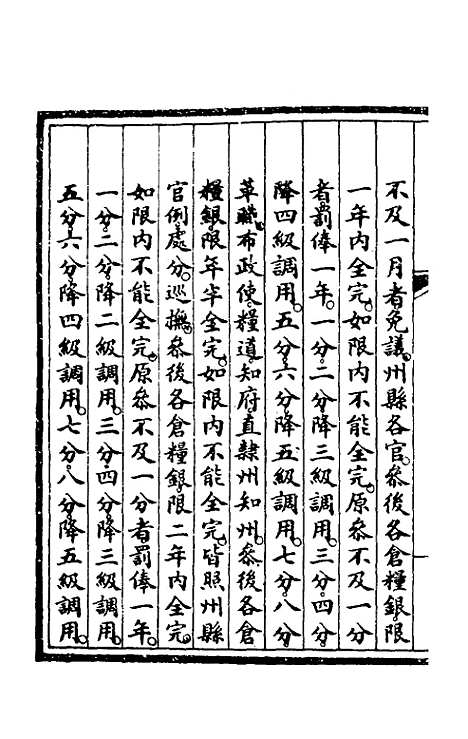 不及一月者免議。州縣各官。叅後各倉糧銀。限
一年内全完。如限内不能全完。原叅不及一分
者罰俸一年。一分。二分。降三級調用。三分。四分。
降四級調用。五分。六分。降五級調用。七分。八分。
革職。布政使。糧道。知府。直隸州知州。叅後各倉
糧銀。限年半全完。如限内不能全完。皆照州縣
官例處分。巡撫。叅後各倉糧銀。限二年内全完。
如限内不能全完。原叅不及一分者罰俸一年。
一分。二分。降二級調用。三分。四分。降三級調用。
五分。六分。降四級調用。七分。八分。降五級調用。